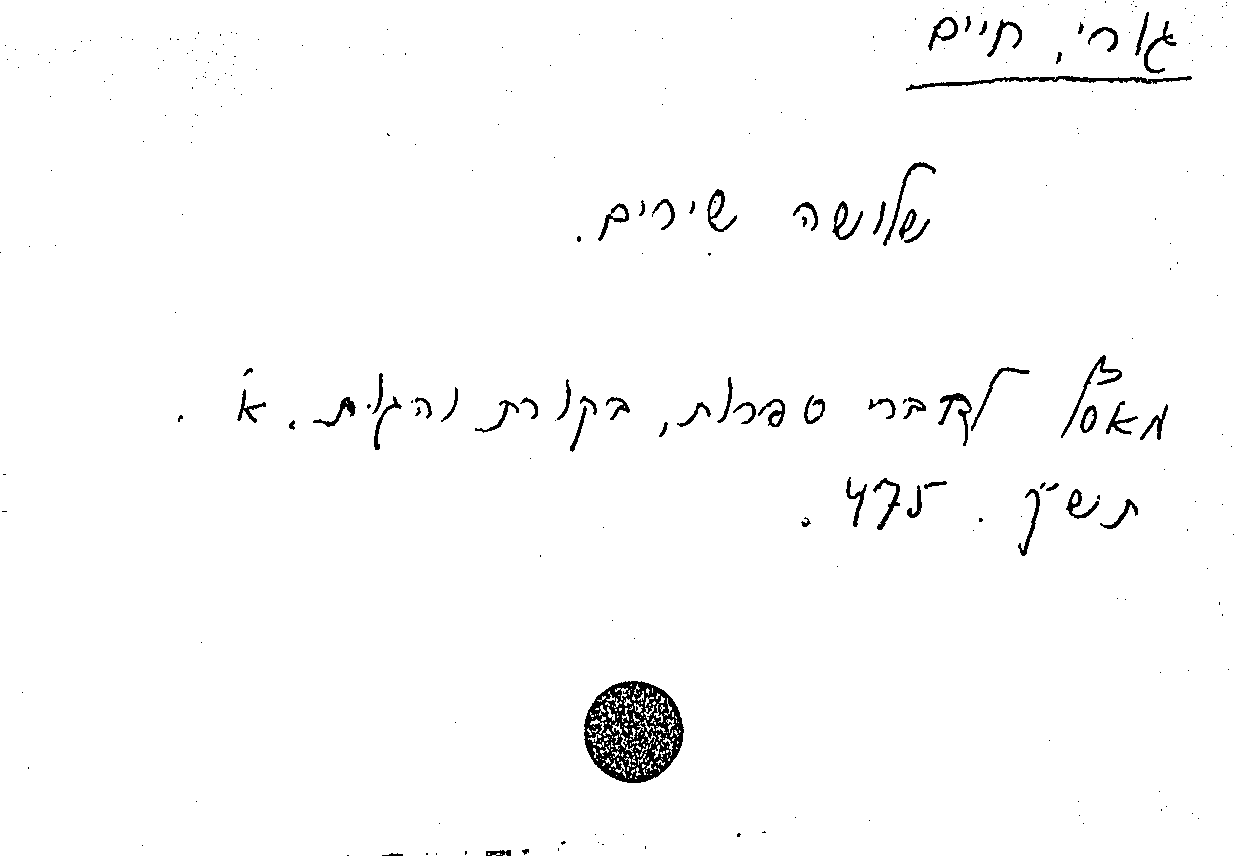 גורי, חיים
שלושה שירים.
מאסף לדברי ספרות, בקורת והגות. א'.
תש"ך. 475.